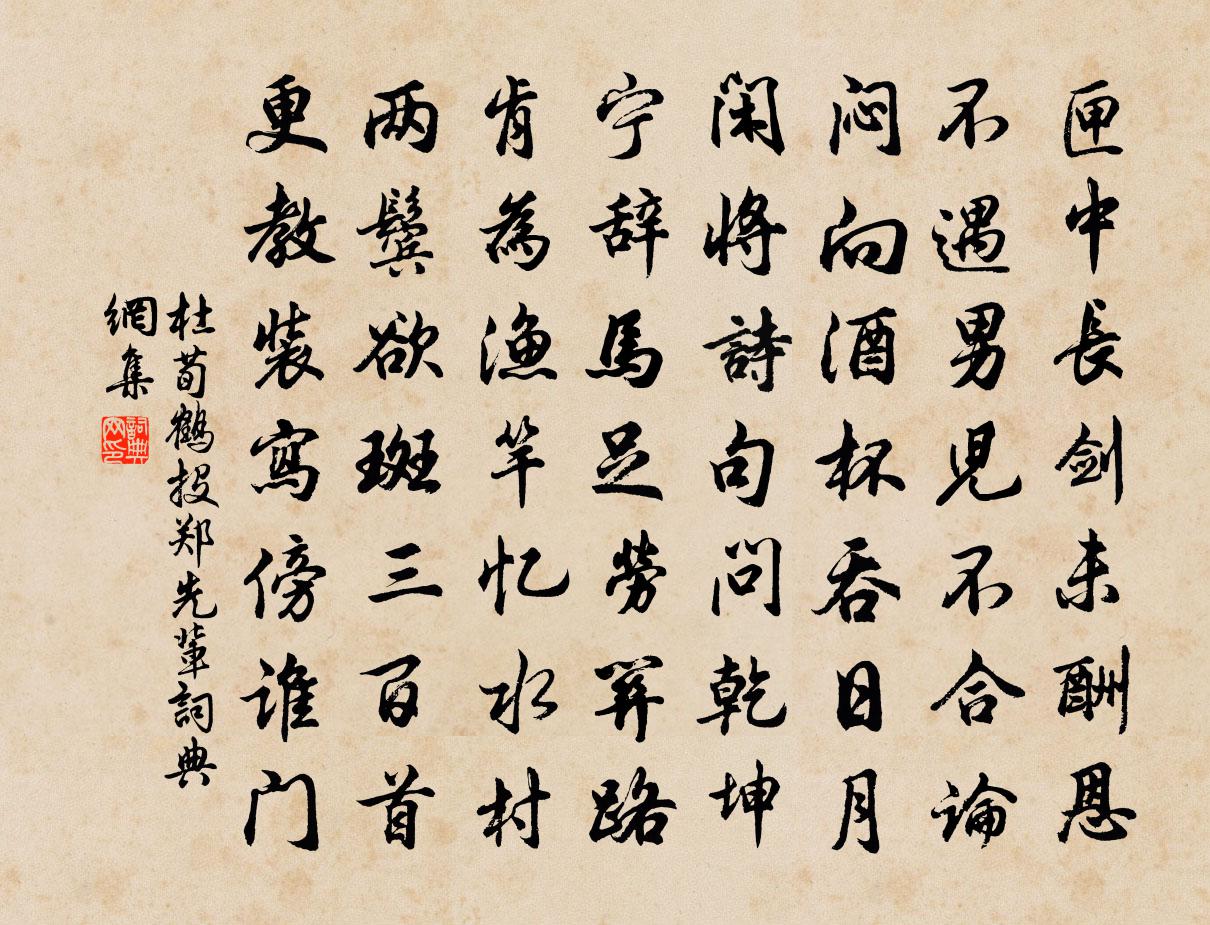 匣中長剑未酬恩
不遇男児不合論
闷向酒杯吞日月
閑将詩句问乾坤
宁辞馬足劳關路
肯為渔竿忆水村
两鬓欲斑三百首
更教装寫傍谁门
杜荀鶴投郑先輩詞典
網集
詞典
网印